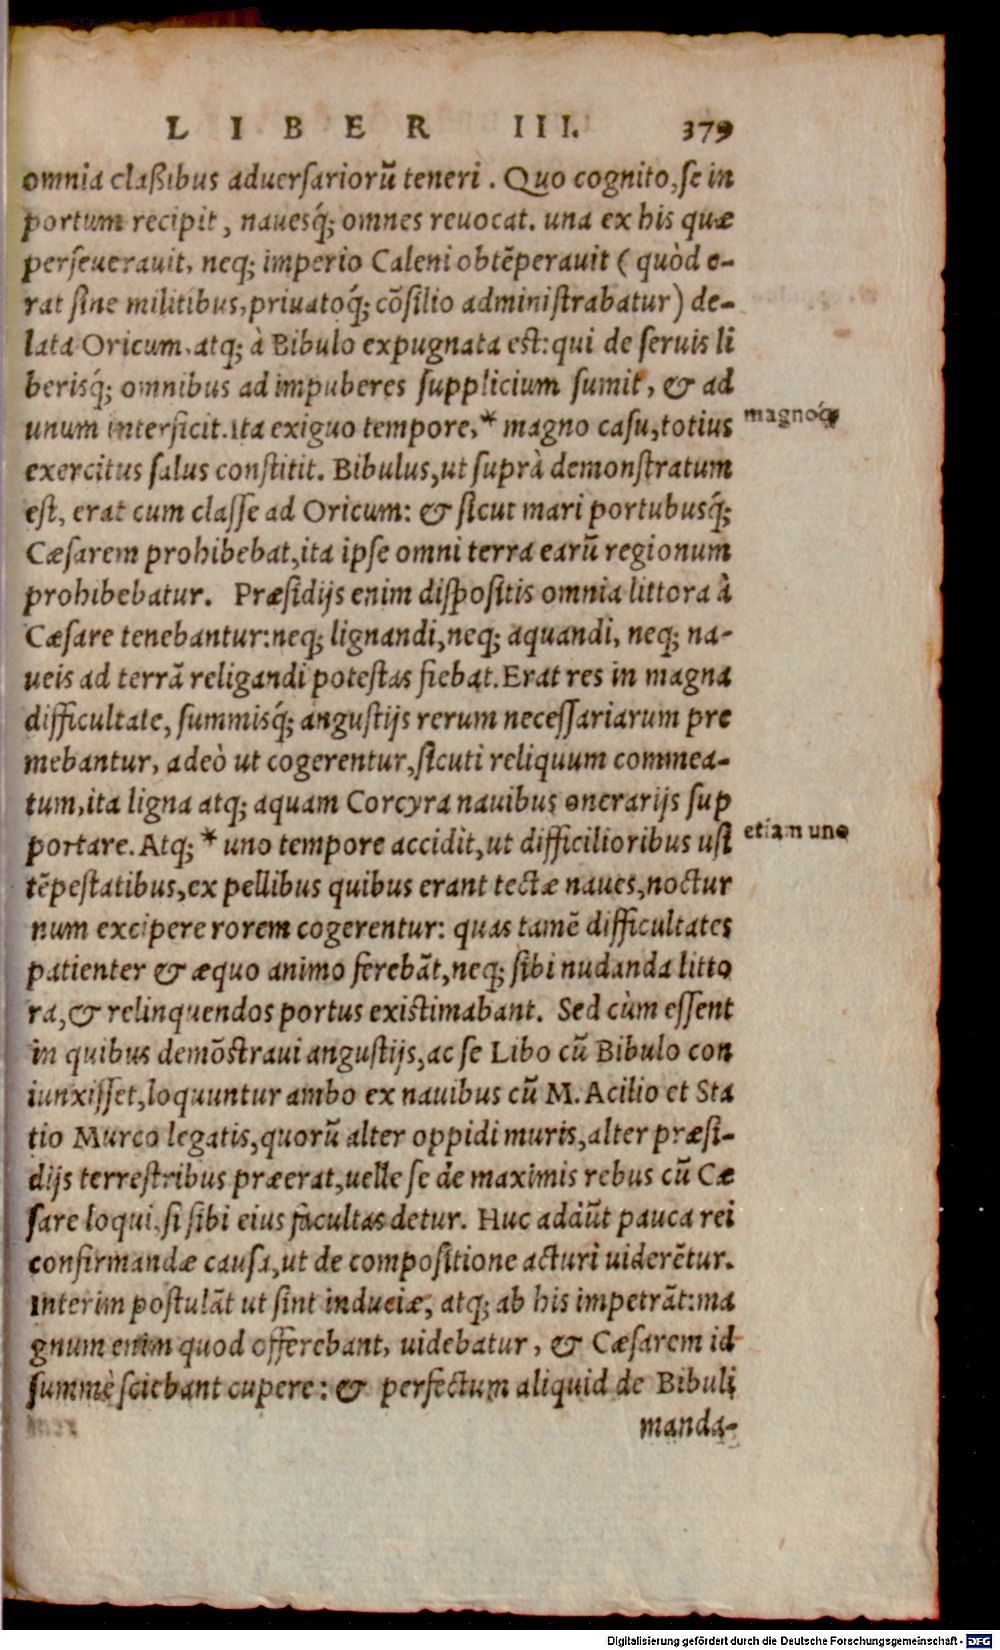 LIBER III. 379
omnia claßibus aduersariorū teneri. Quo cognito, se in
portum recipit, nauesq́; omnes reuocat. una ex his quæ
perseuerauit, neq; imperio Caleni obtēperauit (quòd e-
rat sine militibus, priuatoq́; cōsilio administrabatur) de-
lata Oricum, atq; à Bibulo expugnata est: qui de seruis li
berisq́; omnibus ad impuberes supplicium sumit, & ad
unum interficit. Ita exiguo tempore, * magno casu, totius
magnoq́;
exercitus salus constitit. Bibulus, ut suprà demonstratum
est, erat cum classe ad Oricum: & sicut mari portubusq́;
Cæsarem prohibebat, ita ipse omni terra earū regionum
prohibebatur. Præsidijs enim dispositis omnia littora à
Cæsare tenebantur: neq; lignandi, neq; aquandi, neq; na-
ueis ad terrā religandi potestas fiebat. Erat res in magna
difficultate, summisq́; angustijs rerum necessariarum pre
mebantur, adeò ut cogerentur, sicuti reliquum commea-
tum, ita ligna atq; aquam Corcyra nauibus onerarijs sup
portare. Atq; * uno tempore accidit, ut difficilioribus usi
etiam uno
tēpestatibus, ex pellibus quibus erant tectæ naues, noctur
num excipere rorem cogerentur: quas tamē difficultates
patienter & æquo animo ferebāt, neq; sibi nudanda litto
ra, & relinquendos portus existimabant. Sed cùm essent
in quibus demōstraui angustijs, ac se Libo cū Bibulo con
iunxisset, loquuntur ambo ex nauibus cū M. Acilio et Sta
tio Murco legatis, quorū alter oppidi muris, alter præsi-
dijs terrestribus præerat, uelle se de maximis rebus cū Cæ
sare loqui, si sibi eius facultas detur. Huc addūt pauca rei
confirmandæ causa, ut de compositione acturi uiderētur.
Interim postulāt ut sint induciæ, atq; ab his impetrāt: ma
gnum enim quod offerebant, uidebatur, & Cæsarem id
summè sciebant cupere: & perfectum aliquid de Bibuli
manda-
Digitalisierung gefördert durch die Deutsche Forschungsgemeinschaft - DFG